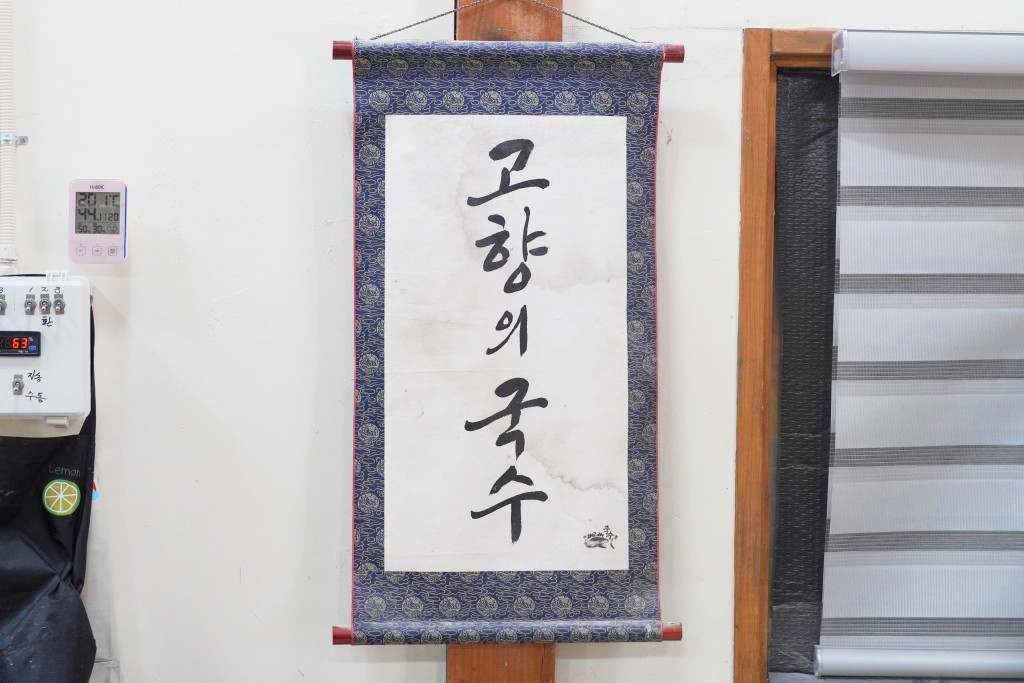 고향의국수
20.1℃
44
11:20
1 2 3
환
63
자동
수동
Lemon